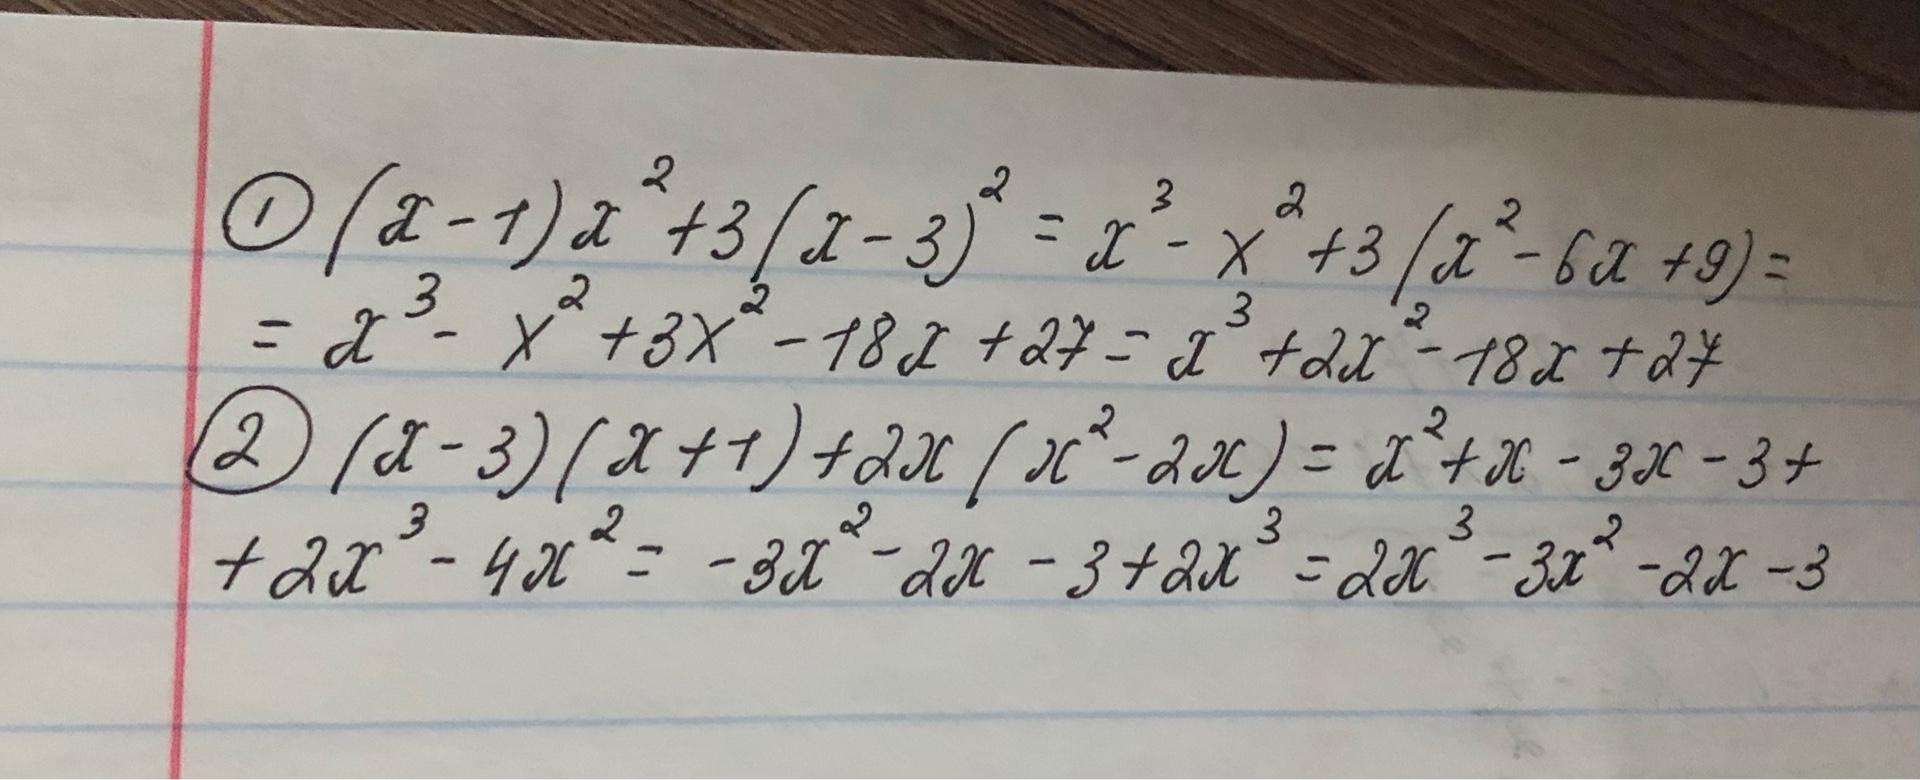 ① (x-1)x²+3(x-3)²=x³-x²+3(x²-6x+9)=
=x³-x²+3x²-18x+27=x³+2x²-18x+27
② (x-3)(x+1)+2x(x²-2x)=x²+x-3x-3+
+2x³-4x²=-3x²-2x-3+2x³=2x³-3x²-2x-3